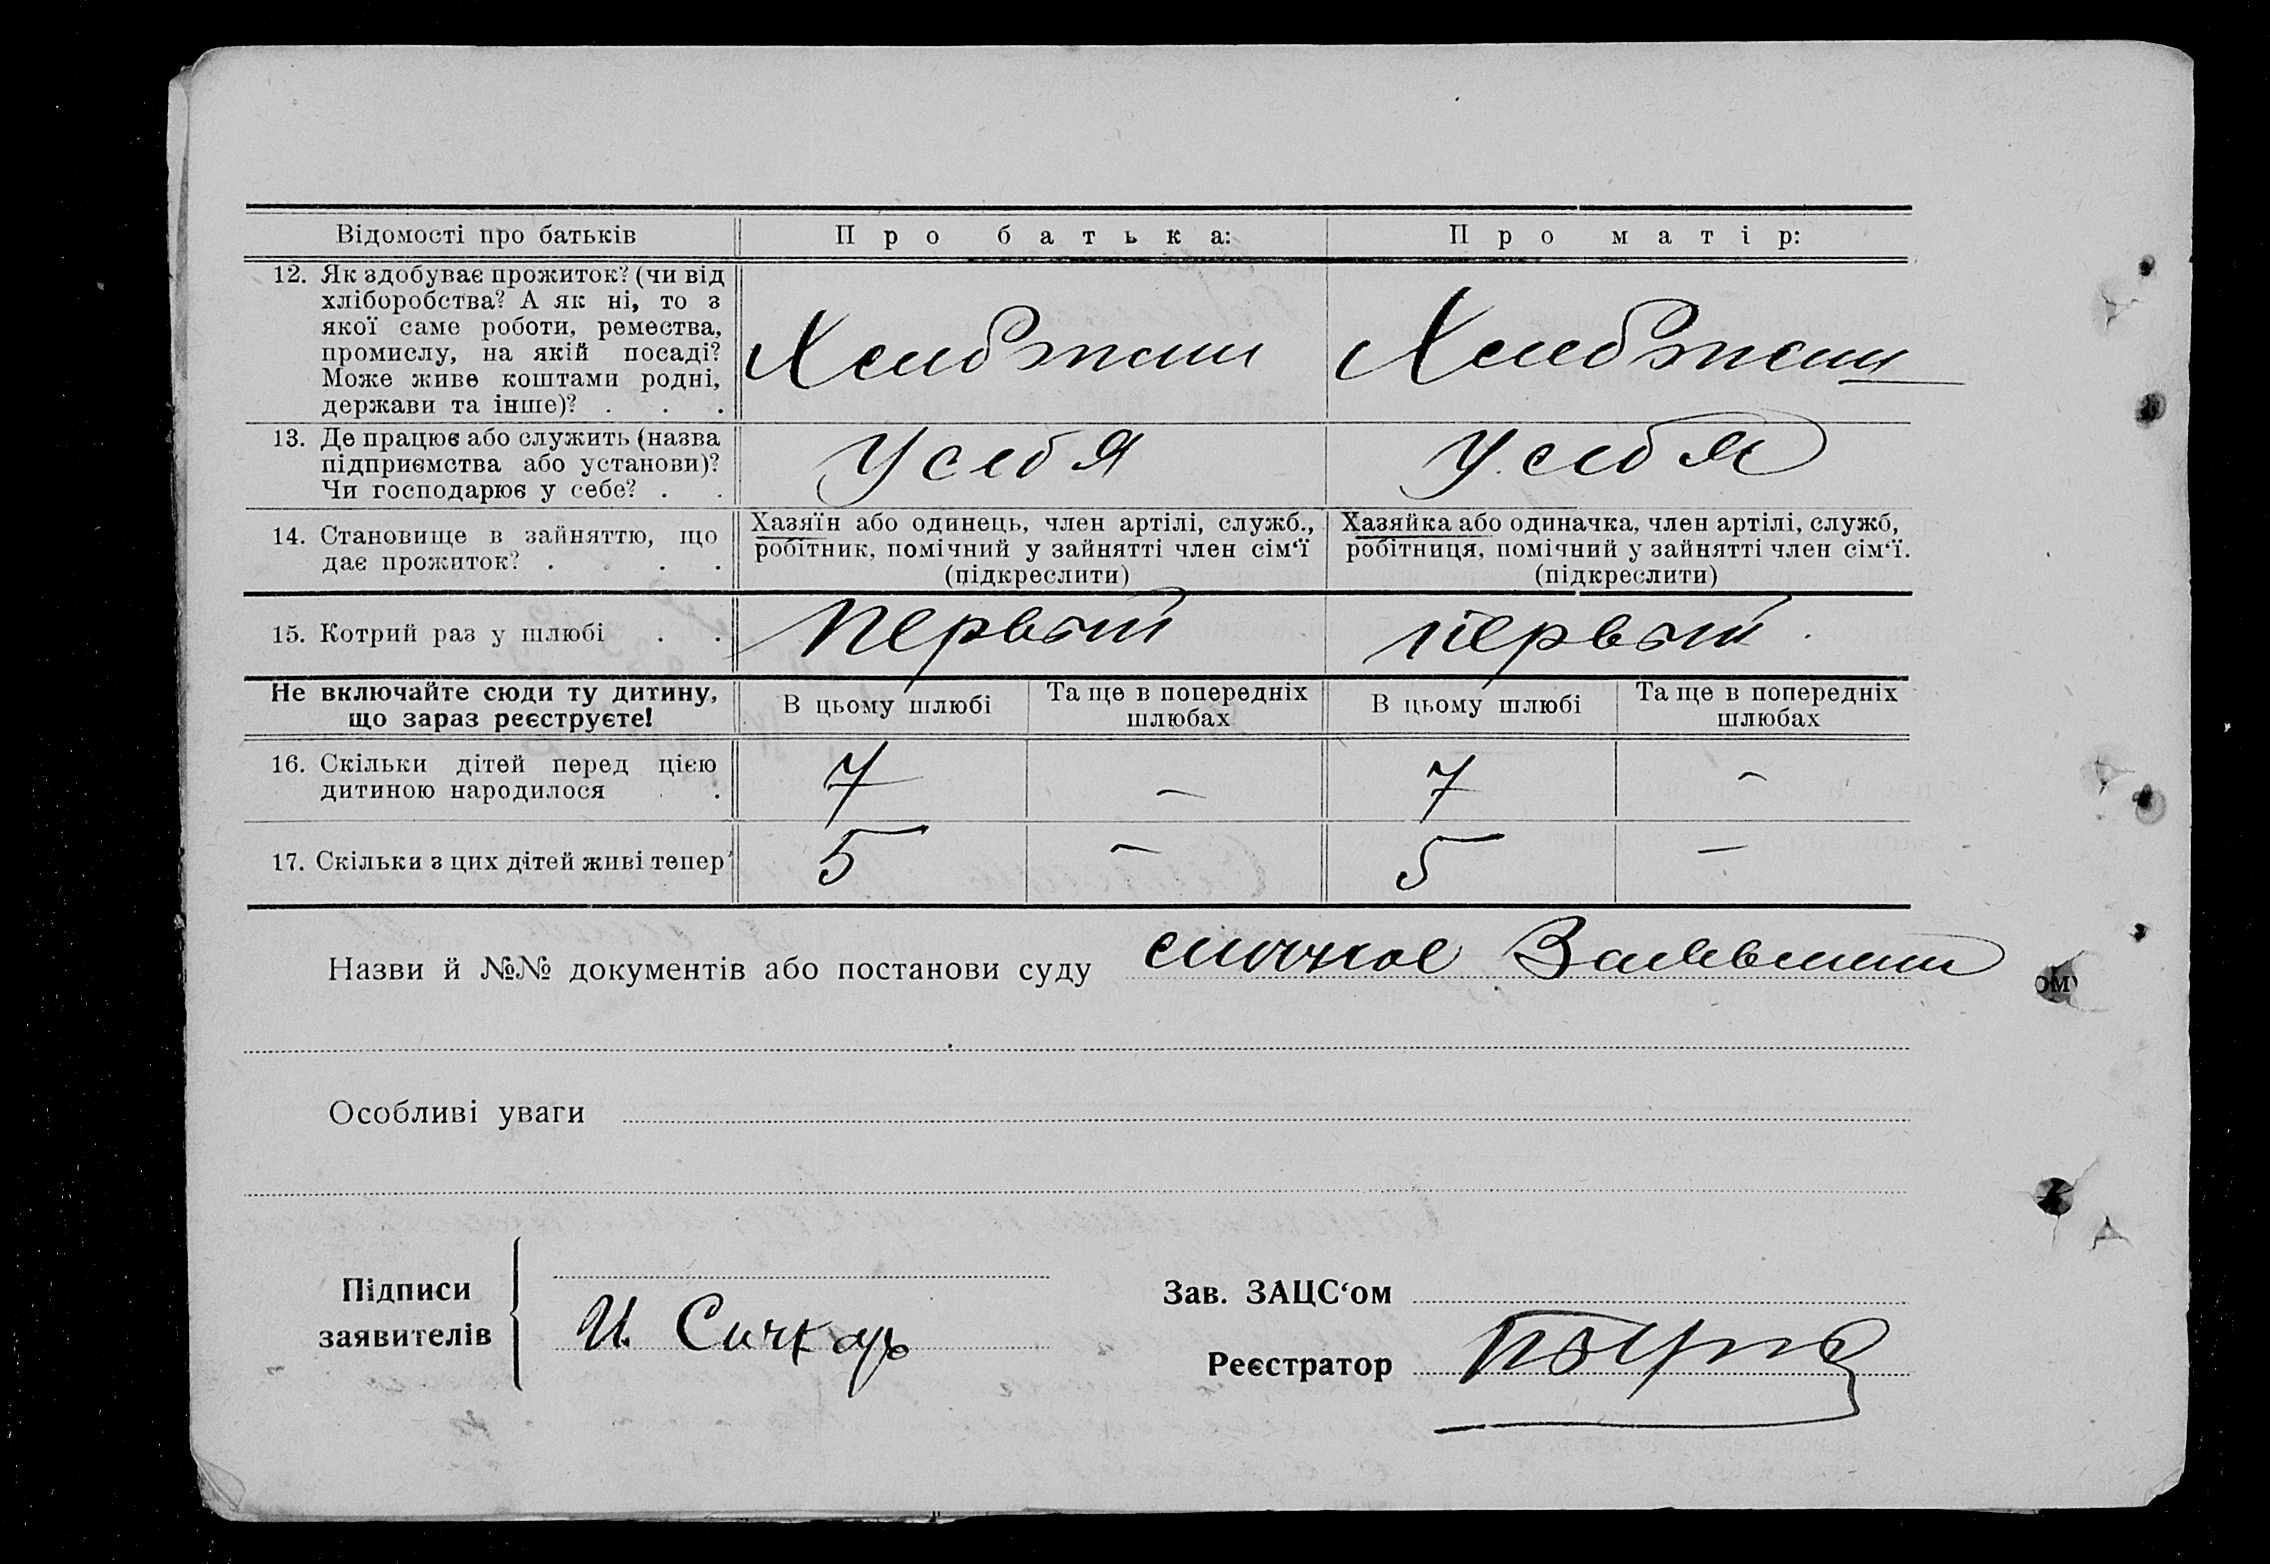 Відомості про батьків
Про батька:
Про матір:
12. Як здобуває прожиток? (чи від
хліборобства? А як ні, то з
якої саме роботи, ремества,
промислу, на якій посаді?
Може живе коштами родні,
держави та інше)? . . .
13. Де працює або служить (назва
підприємства або установи)?
Чи господарює у себе? . .
У себя
У себя
14. Становище в зайняттю, що
дає прожиток? . . . .
Хазяїн або одинець, член артілі, служб.,
робітник, помічний у зайнятті член сім‘ї
(підкреслити)
Хазяйка або одиначка, член артілі, служб,
робітниця, помічний у зайнятті член сім‘ї.
(підкреслити)
15. Котрий раз у шлюбі . .
Первый
первый
Не включайте сюди ту дитину,
що зараз реєструєте!
В цьому шлюбі
Та ще в попередніх
шлюбах
В цьому шлюбі
Та ще в попередніх
шлюбах
16. Скільки дітей перед цією
дитиною народилося .
7
—
7
—
17. Скільки з цих дітей живі тепер?
5
—
5
—
Назви й №№ документів або постанови суду
Особливі уваги
Підписи
заявителів
И. Сичкарь
Зав. ЗАЦС‘ом
Реєстратор